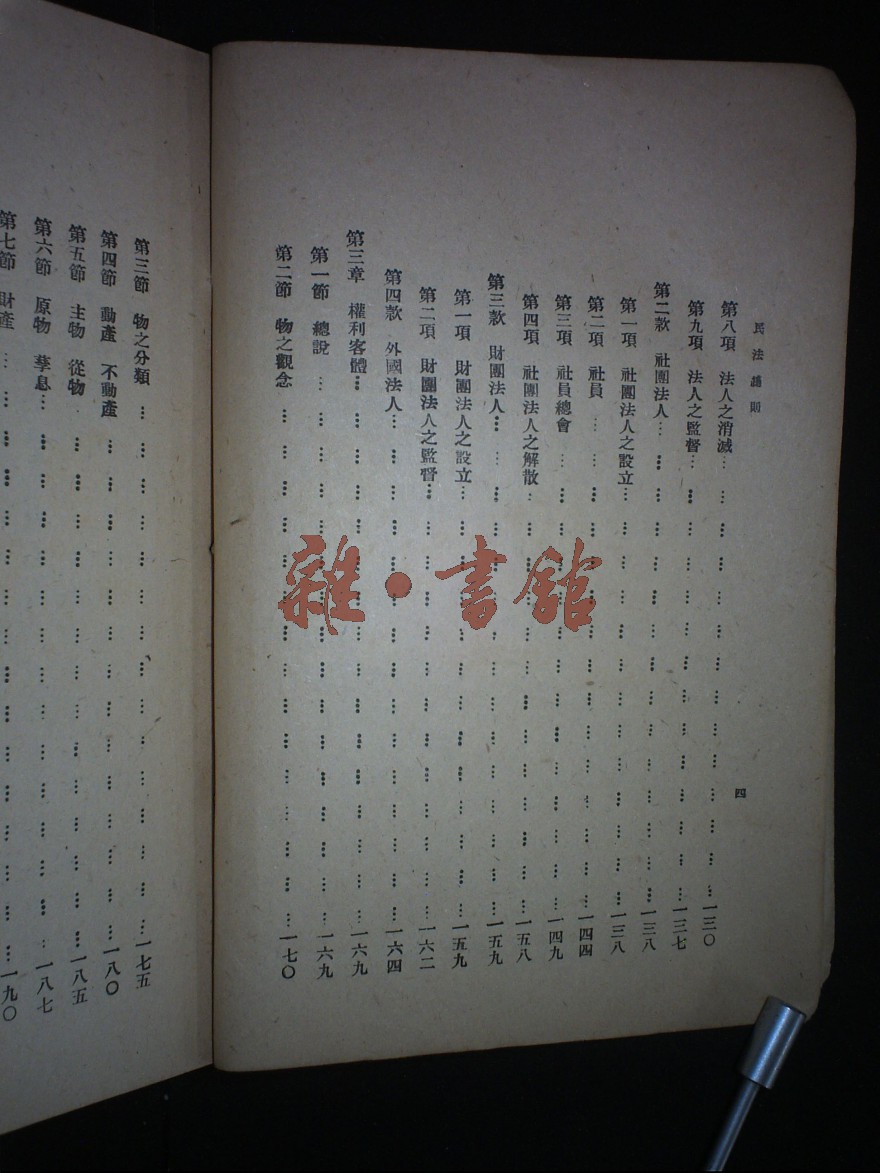 民法總則
四
第八項　法人之消滅……一三〇
第九項　法人之監督……一三七
第二款　社團法人……一三八
第一項　社團法人之設立……一三八
第二項　社員……一四四
第三項　社員總會……一四九
第四項　社團法人之解散……一五八
第三款　財團法人……一五九
第一項　財團法人之設立……一五九
第二項　財團法人之監督……一六二
第四款　外國法人……一六四
第三章　權利客體……一六九
第一節　總說……一六九
第二節　物之觀念……一七〇
第三節　物之分類……一七五
第四節　動產　不動產……一八〇
第五節　主物　從物……一八五
第六節　原物　孳息……一八七
第七節　財產……一九〇
雜·書館